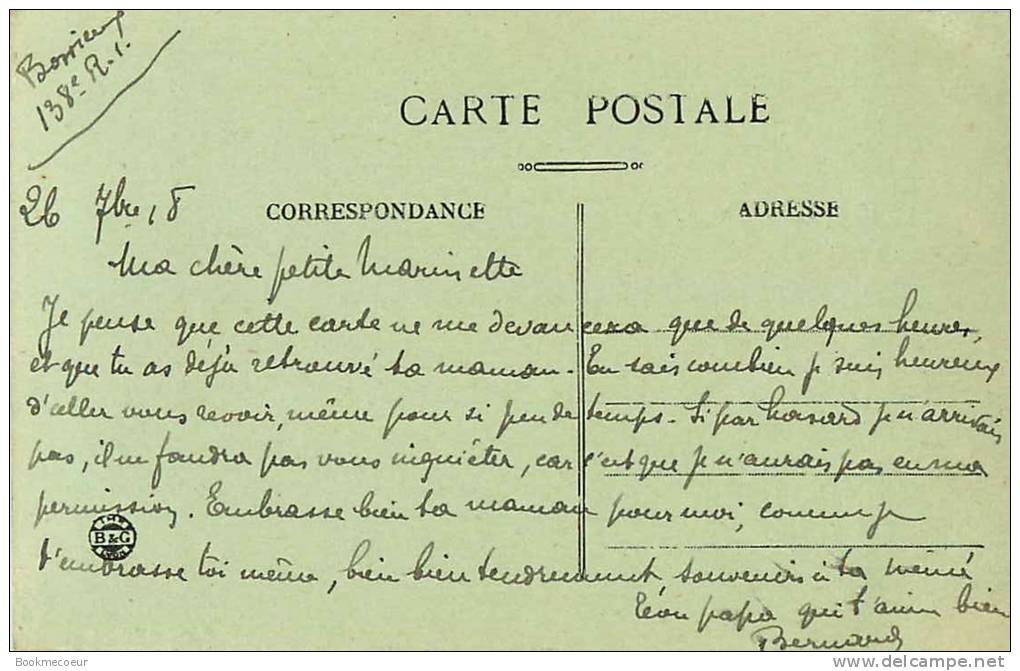 138e R.I.
CARTE POSTALE
26 7bre 18
CORRESPONDANCE
ADRESSE
Ma chère petite Marinette
Je pense que cette carte ne me devancera que de quelques heures,
et que tu as déjà retrouvé ta maman. Tu sais combien je suis heureux
d'aller vous revoir, même pour si peu de temps. Si par hasard je n'arrivais
pas, il ne faudra pas vous inquiéter, car c'est que je n'aurais pas eu ma
permission. Embrasse bien ta maman pour moi, comme je
t'embrasse toi même, bien bien tendrement souvenirs à ta mémé
papa qui t'aime bien
Bernard
IMP
B & G
LYON
Bookmecoeur
delcampe.net